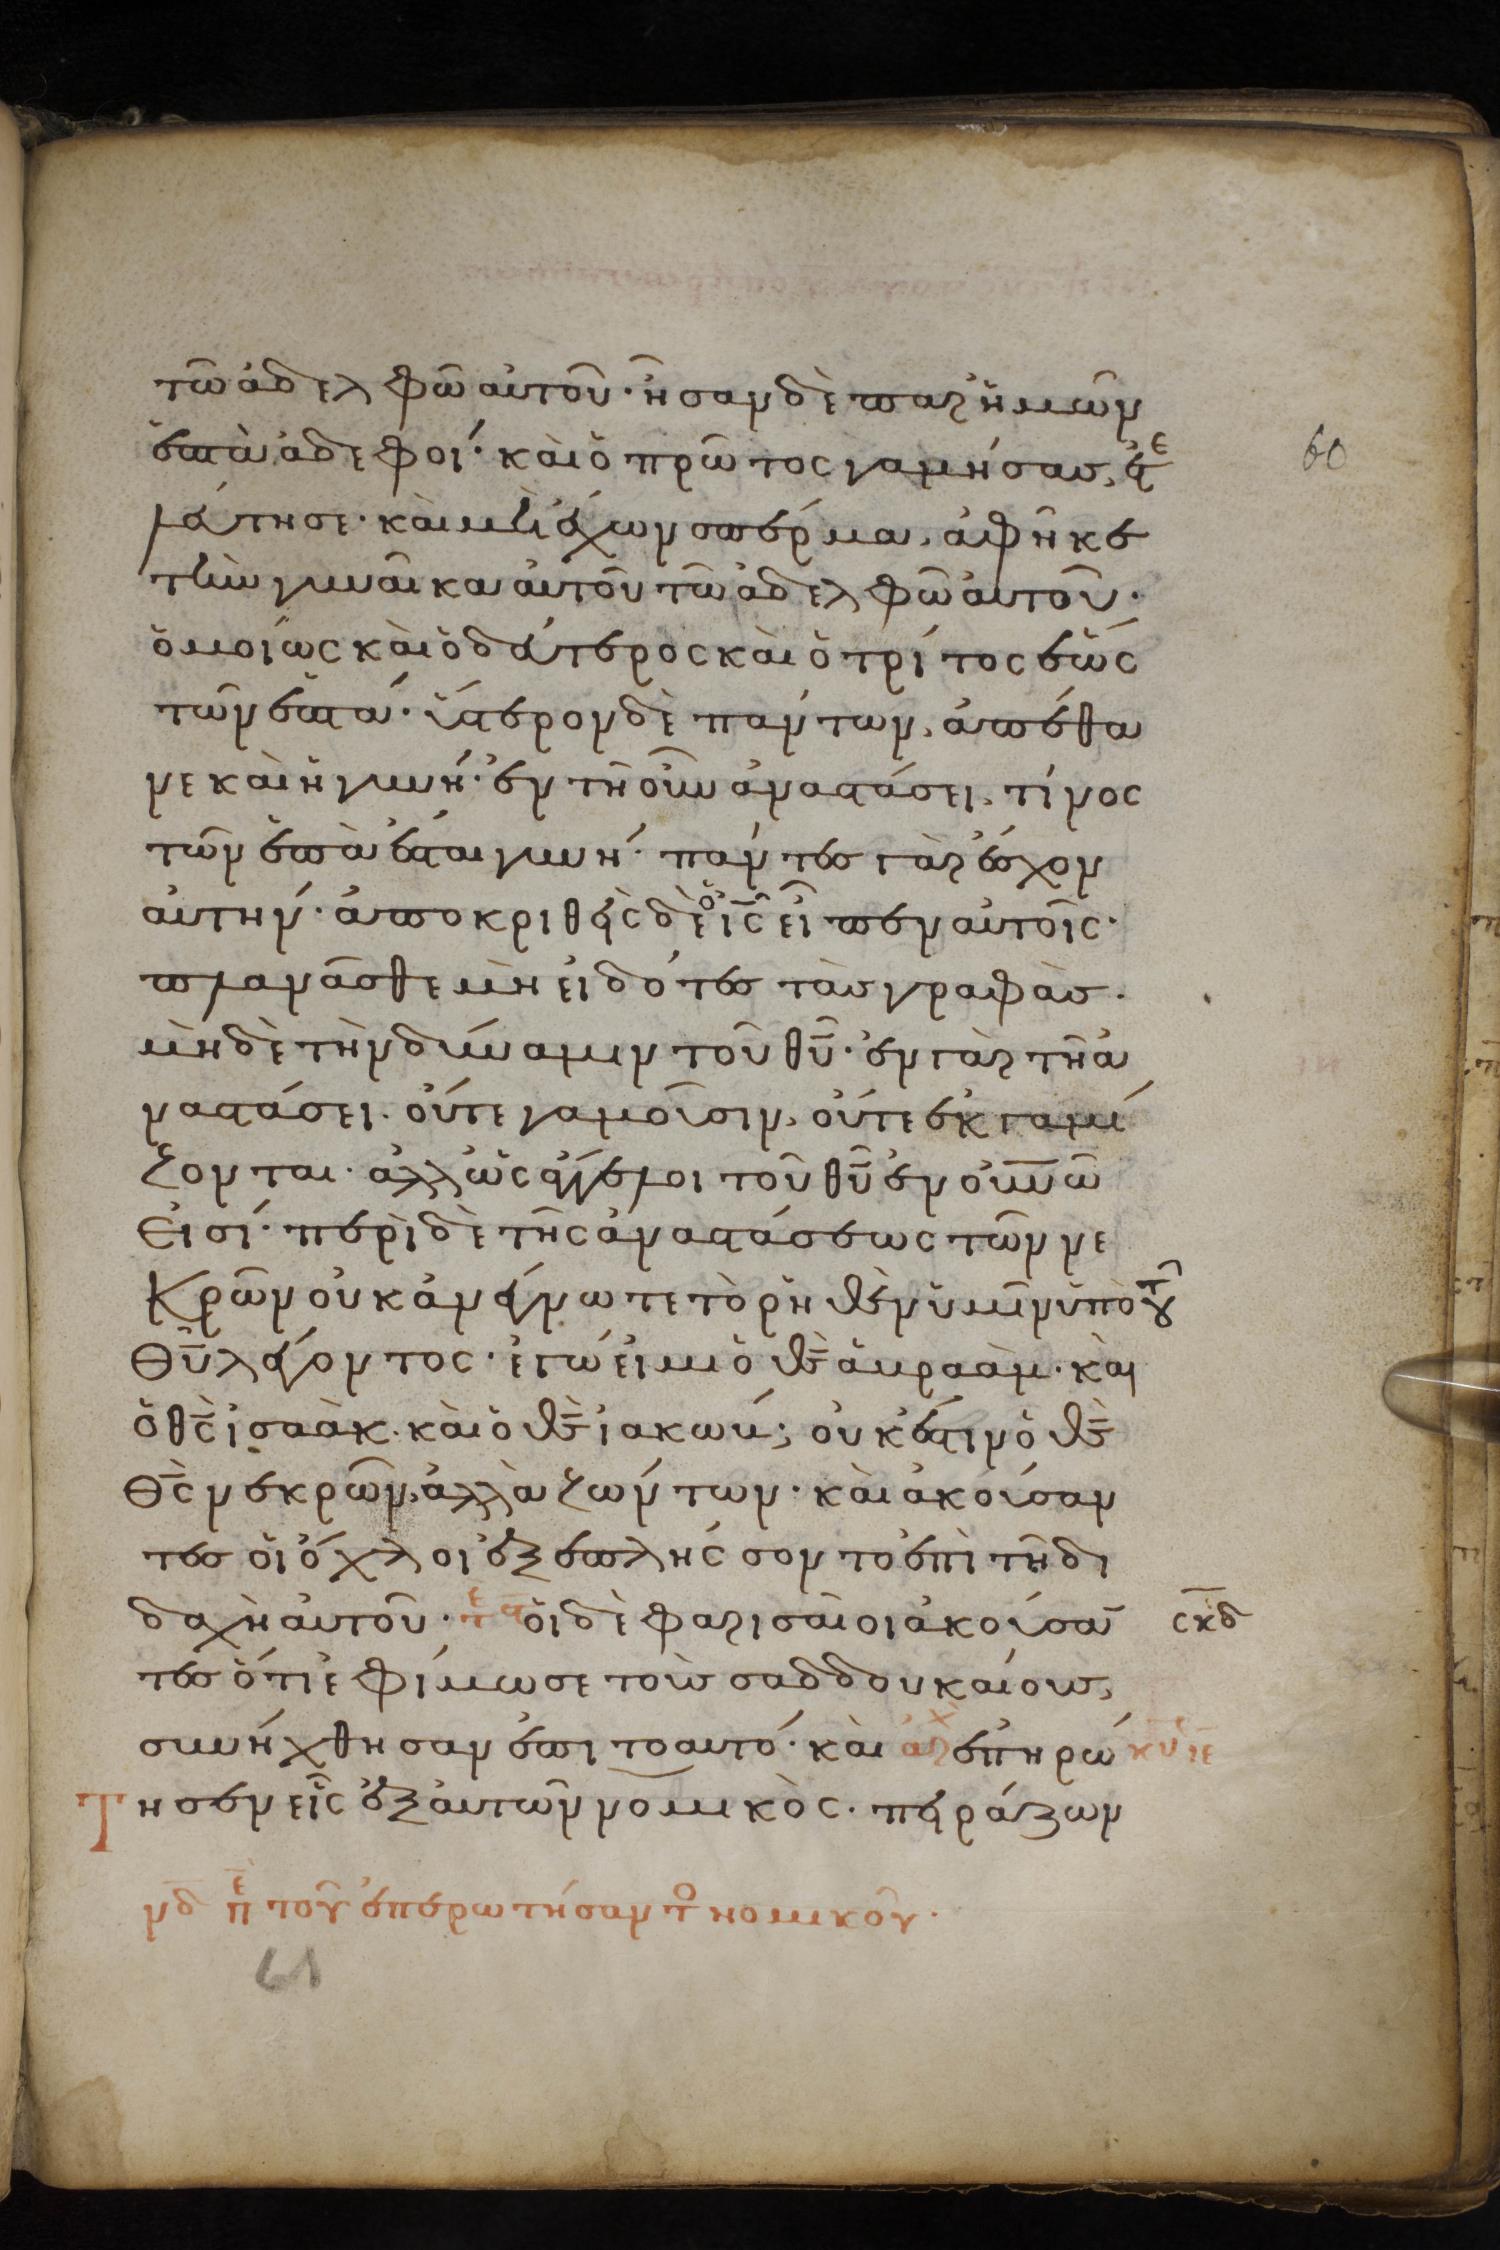 τῶ ἀδελφῶ αὐτοῦ· ἦσαν δὲ παρ ἡμῶν
ἑπτὰ ἀδεφοί· καὶ ὁ πρῶτος γαμήσας, ἐτε
λεύτησε· καὶ μὴ ἔχων σπέρμα, ἀφῆκε
τὴν γυναῖκα αὐτοῦ τῶ ἀδελφῶ αὐτοῦ·
ὁμοίως καὶ ὁ δεύτερος καὶ ὁ τρίτος ἕως
τῶν ἑπτά· ὕστερον δὲ πάντων, ἀπέθα
νε καὶ ἡ γυνή· ἐν τῆ οὖν ἀναστάσει, τίνος
τῶν ἑπτὰ ἔσται γυνή· πάντες γὰρ ἔσχον
αὐτήν· ἀποκριθεὶς δὲ ὁ ι̅ς̅ εἶπεν αὐτοῖς·
πλανᾶσθε μὴ εἰδότες τὰς γραφὰς·
μηδὲ τὴν δύναμιν τοῦ θ̅υ̅· ἐν γὰρ τῆ ἀ
ναστάσει· οὔτε γαμοῦσιν, οὔτε ἐκγαμί
ζονται· ἀλλ ὡς ἄγγελοι τοῦ θ̅υ̅ ἐν ο̅υ̅ν̅ω̅
εἰσί· περὶ δὲ τῆς ἀναστάσεως τῶν νε
κρῶν οὐκ ἀνέγνωτε τὸ ῥηθὲν ὑμῖν ὑπὸ τοῦ
θ̅υ̅ λέγοντος· ἐγώ εἰμι ὁ θ̅ς̅ ἀβραὰμ· καὶ
ὁ θ̅ς̅ ἰσαὰκ· καὶ ὁ θ̅ς̅ ἰακώβ; οὐκ ἔστιν ὁ θ̅ς̅
θ̅ς̅ νεκρῶν, ἀλλὰ ζώντων· καὶ ἀκούσαν
τες οἱ ὄχλοι ἐξεπλήσσοντο ἐπὶ τῆ δι
δαχῆ αὐτοῦ· οἱ δὲ φαρισαῖοι ἀκούσαν ςκδ
τες ὅτι ἐφίμωσε τοὺς σαδδουκαίους,
συνήχθησαν ἐπι τοαυτό· καὶ ἀρχ ἐπηρώ κυ ιε
τησεν εἷς ἐξ αὐτῶν νομικὸς· πειράζων
νδ πε τοῦ ἐπερωτήσαντο νομικοῦ·
60
61